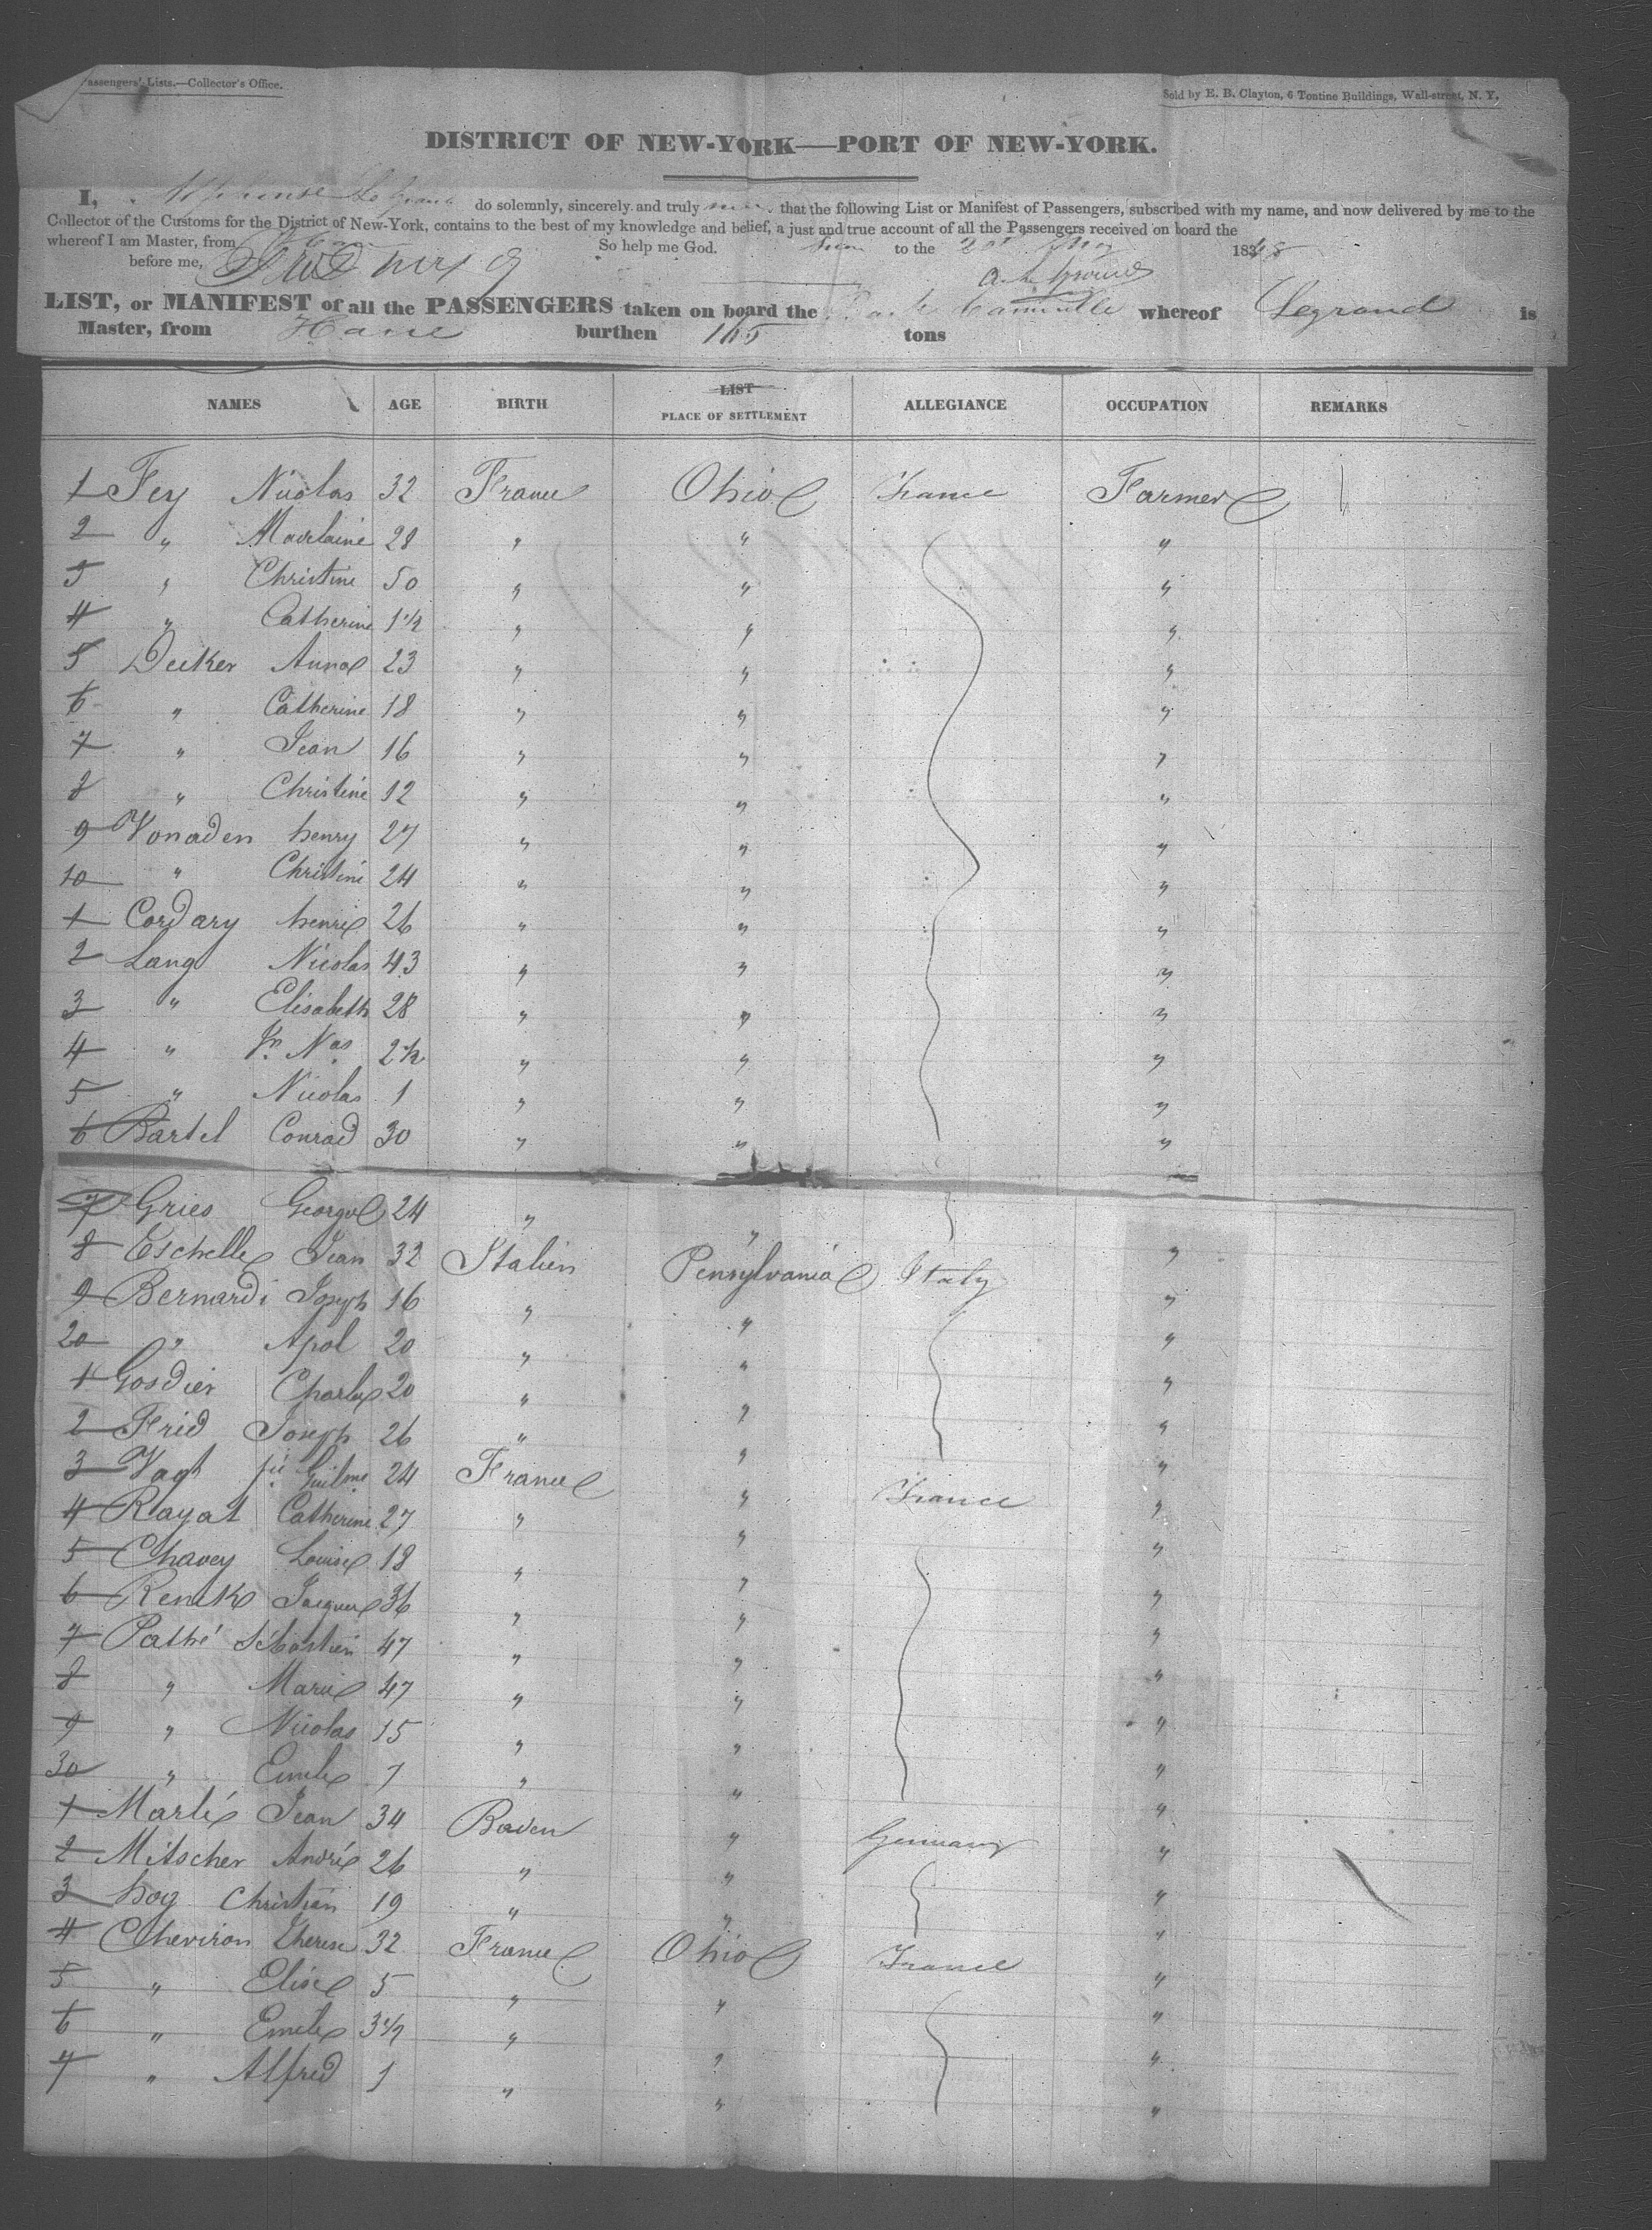 Passengers' Lists.—Collector's Office.
Sold by E. B. Clayton, 6 Tontine Buildings, Wall-street, N. Y.
DISTRICT OF NEW-YORK—PORT OF NEW-YORK.
I, Alphonse Legrand do solemnly, sincerely and truly that the following List or Manifest of Passengers, subscribed with my name, and now delivered by me to the
Collector of the Customs for the District of New-York, contains to the best of my knowledge and belief, a just and true account of all the Passengers received on board the
whereof I am Master, from So help me God. to the 1848
before me,
LIST, or MANIFEST of all the PASSENGERS taken on board the whereof Legrand is
Master, from Havre burthen tons
NAMES AGE BIRTH LIST PLACE OF SETTLEMENT ALLEGIANCE OCCUPATION REMARKS
1 Fey Nicolas 32 France Ohio France Farmer
2 " Madelaine 28 " " "
3 " Christine 50 " " "
4 " Catherine 1½ " " "
5 Decker Anna 23 " " "
6 " Catherine 18 " " "
7 " Jean 16 " " "
8 " Christine 12 " " "
9 Vonaden henry 27 " " "
10 " Christine 24 " " "
1 Cordary henrie 26 " " "
2 Lang Nicolas 43 " " "
3 " Elisabeth 28 " " "
4 " Jn. Nas 2½ " " "
5 " Nicolas 1 " " "
6 Bartel Conrad 30 " " "
7 Gries George 24 " " "
8 Eschelle Jean 32 Italien Pensylvania Italy "
9 Bernardi Joseph 16 " " "
20 " Apol 20 " " "
1 Gosdier Charles 20 " " "
2 Frid Joseph 26 " " "
3 Vagt Guilme 24 France " France "
4 Rayat Catherine 27 " " "
5 Chavey Louise 18 " " "
6 Renck Jacques 36 " " "
7 Pathé Sébastien 47 " " "
8 " Marie 47 " " "
9 " Nicolas 15 " " "
30 " Emile 7 " " "
1 Marlié Jean 34 Baden " Germany "
2 Mitscher André 26 " " "
3 hog Christian 19 " " "
4 Cheviron Therese 32 France Ohio France "
5 " Elise 5 " " "
6 " Emile 3½ " " "
7 " Alfred 1 " " "